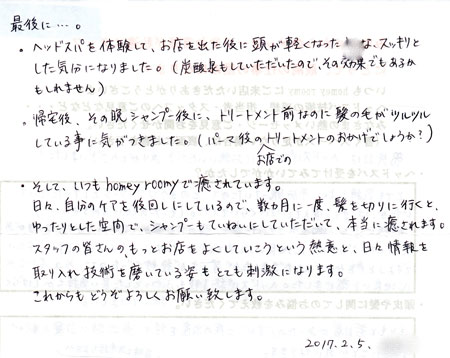 最後に…。
・ヘッドスパを体験して、お店を出た後に頭が軽くなった な、スッキリと
した気分になりました。(炭酸泉もしていただいたので、その効果でもあるか
もしれません)
・帰宅後、その晩シャンプー後に、トリートメント前なのに髪の毛がツルツル
している事に気がつきました。(パーマ後のお店でのトリートメントのおかげでしょうか?)
・そして、いつもhomey roomyで癒されています。
日々、自分のケアを後回しにしているので、数カ月に一度、髪を切りに行くと、
ゆったりとした空間で、シャンプーもていねいにしていただいて、本当に癒されます。
スタッフの皆さんの、もっとお店をよくしていこうという熱意と、日々情報を
取り入れ技術を磨いている姿もとても刺激になります。
これからもどうぞよろしくお願い致します。
2017.2.5.